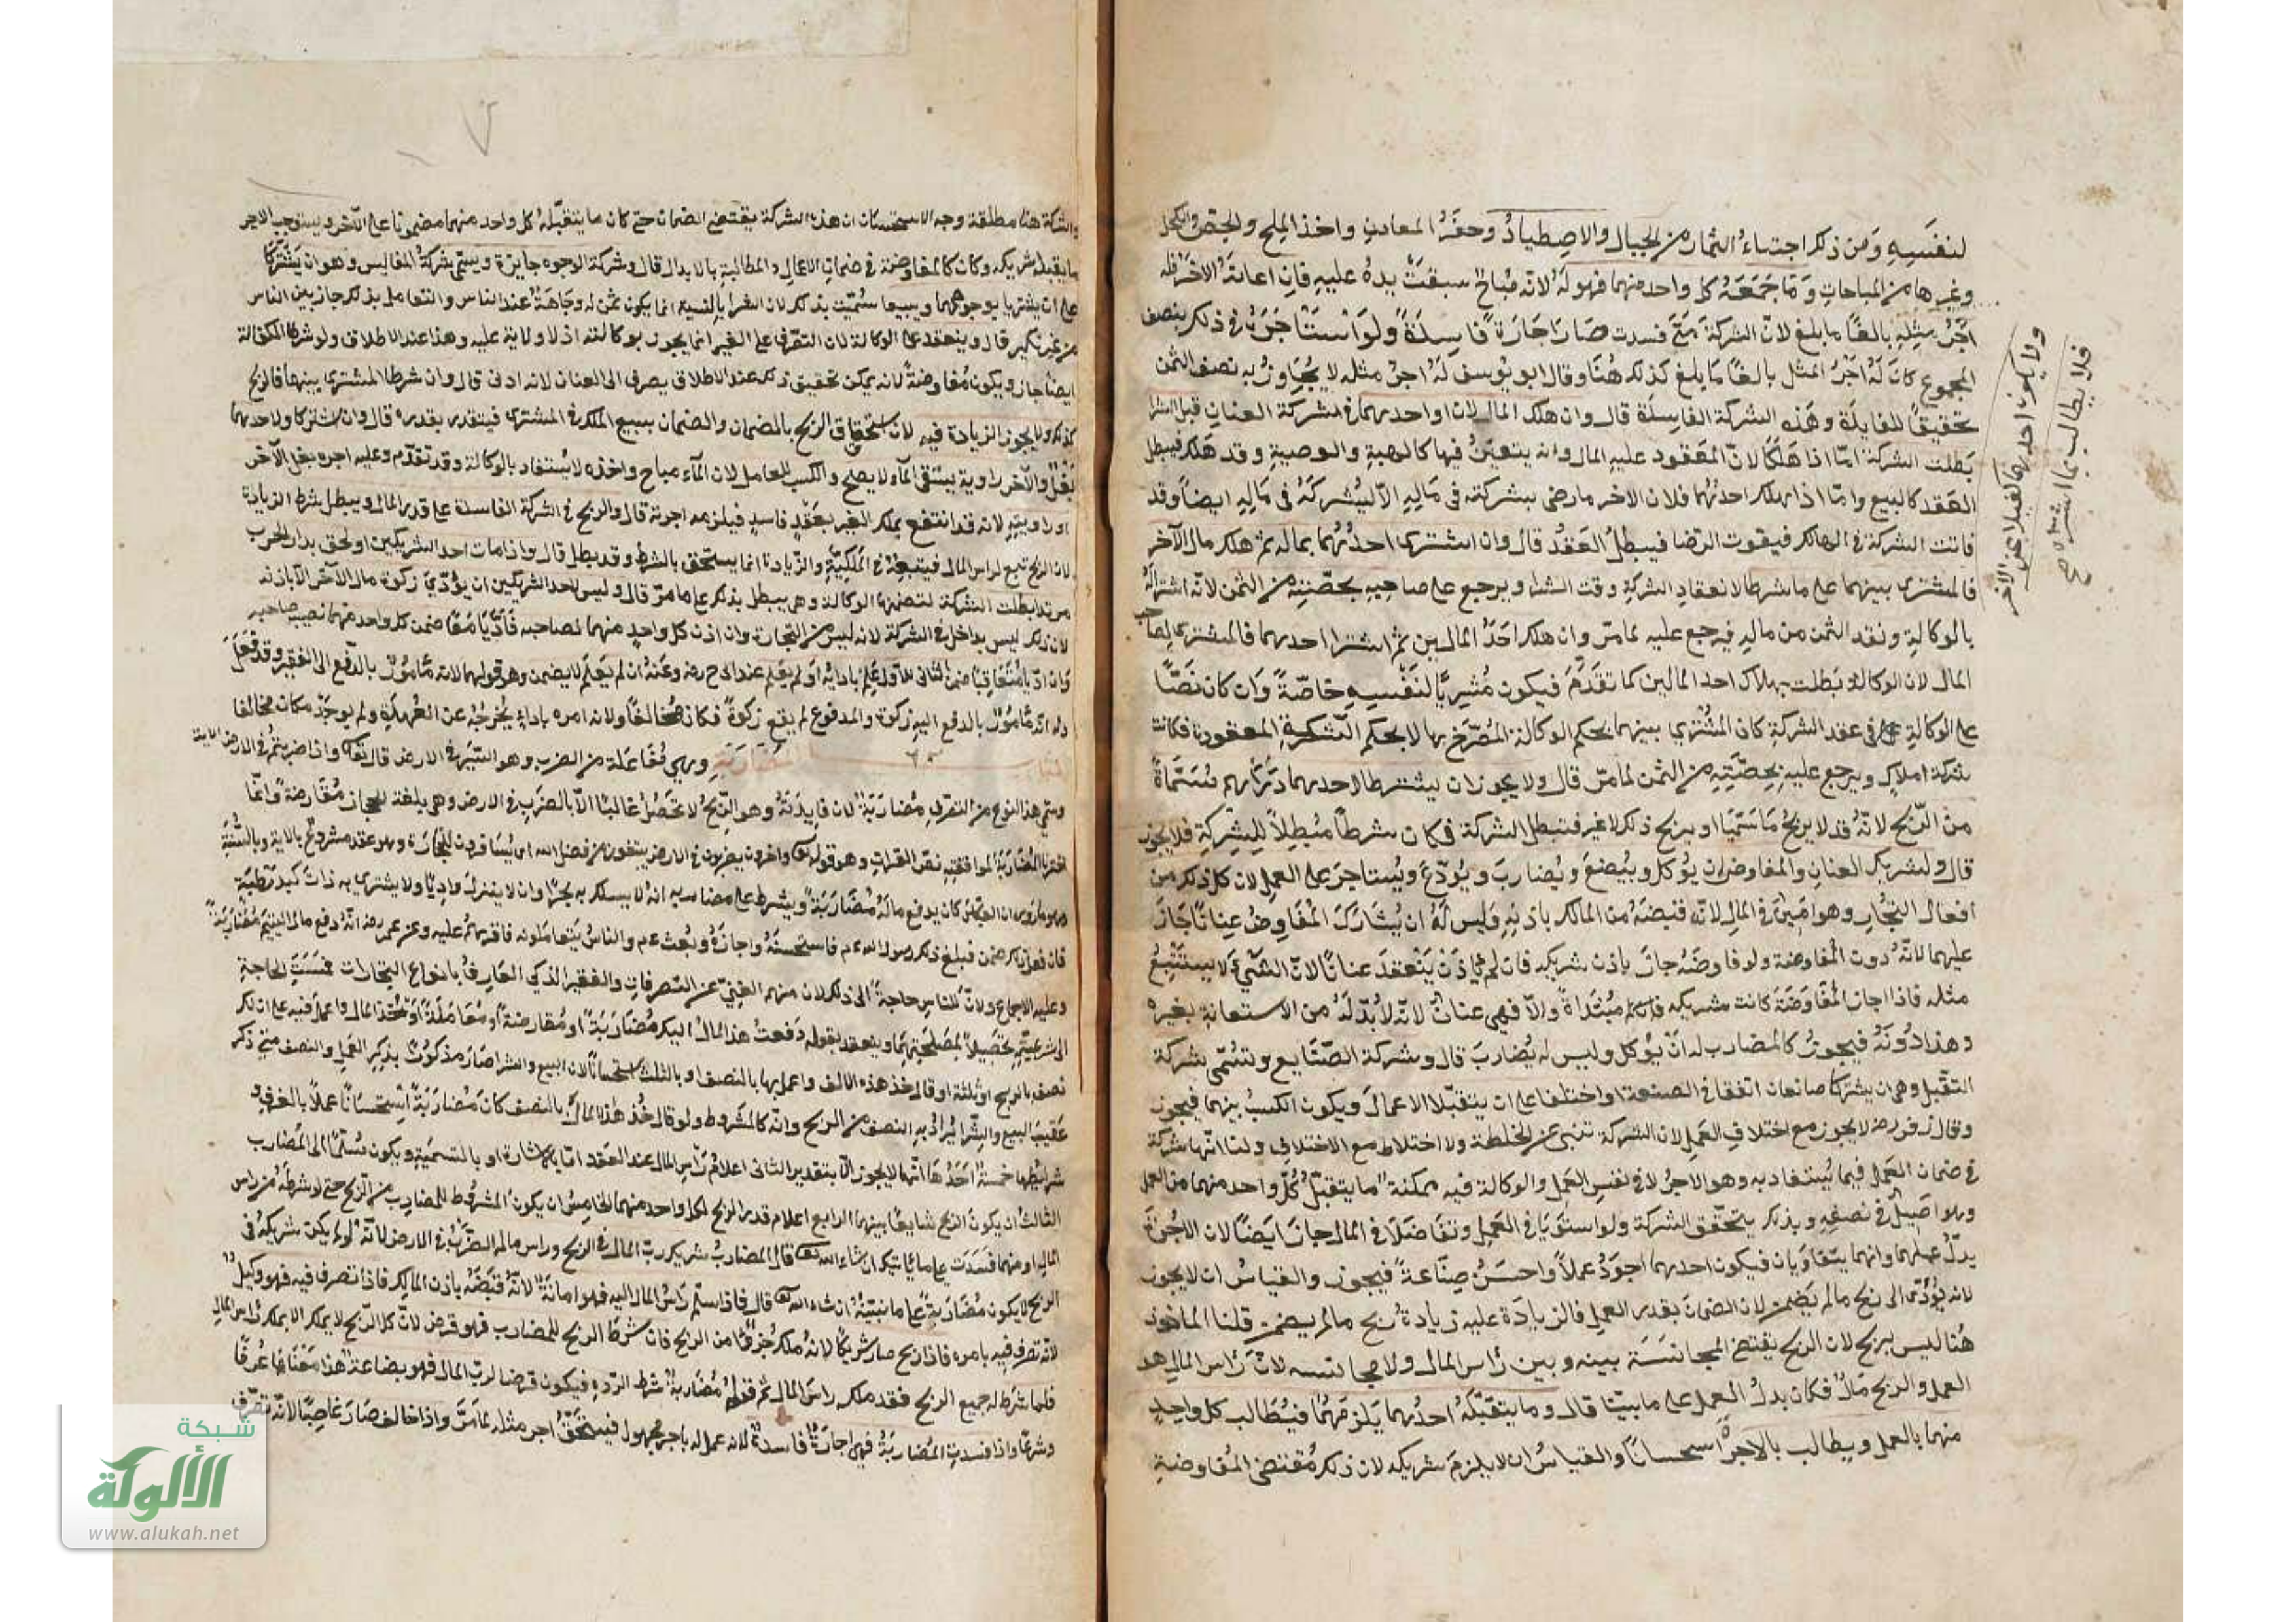 لنفسه ومن ذكر اجتناء الثمار من الجبال والاصطياد وحفر المعادن واخذ الملح والجص والكحل
وغيرها من المباحات وما جمعه كل واحد منهما فهو له لانه مباح سبقت يده عليه فان اعانه الاخر فله
اجر مثله بالغا ما بلغ لان الشركة متى فسدت صارا جارة فاسدة ولو استاجره في ذلك بنصف
المجموع كان له اجر المثل بالغا ما بلغ كذلك هنا وقال ابو يوسف له اجر مثله لا يجاوز به نصف الثمن
تحقيقا للفايدة وهذه الشركة الفاسدة قال وان هلك المالان او احدهما في شركة العنان قبل الشرا
بطلت الشركة امّا اذا هلكا لانّ المعقود عليه المال وانه يتعين فيها كالهبة والوصية وقد هلك فيبطل
العقد كالبيع وامّا اذا هلك احدهما فلان الاخر ما رضي بشركته في ماله الا ليشركه في ماله ايضا وقد
فاتت الشركة في الهالك فيفوت الرضا فيبطل العقد قال وان اشترى احدهما بماله ثم هلك مال الآخر
فالمشترى بينهما على ما شرطا لانعقاد الشركة وقت الشرا ويرجع على صاحبه بحصته من الثمن لانه اشتراه
بالوكالة ونقد الثمن من ماله فيرجع عليه لما مرّ وان هلك احد المالين ثم اشترا احدهما فالمشترى لصاحب
المال لان الوكالة بطلت بهلاك احد المالين كما تقدم فيكون مشتريا لنفسه خاصّة وان كان نصّا
على الوكالة في عقد الشركة كان المشترى بينهما بحكم الوكالة المصرّح بها لا بحكم الشركة المعقودة فكانت
شركة املاك ويرجع عليه بحصّته من الثمن لما مرّ قال ولا يجوز ان يشترطا لاحدهما دراهم مسمّاة
من الرّبح لانّه قد لا يربح ما سمّيا او يربح ذلك لا غير فتبطل الشركة فكان شرطا مبطلا للشركة فلا يجوز
قال ولشريك العنان والمفاوض ان يوكل ويبضع ويضارب ويودع ويستاجر على العمل لان كل ذلك من
افعال التجار وهو امين في المال لانّه قبضه من المالك باذنه وليس له ان يشارك المفاوض عنانا جاز
عليهما لانّه دون المفاوضة ولو فاوضه جاز باذن شريكه فان لم ياذن ينعقد عنانا لان الشيء لا يستتبع
مثله فاذا اجاز المفاوضة كانت شريكه مبتداة والّا فهي عنان لانّه لا بدّ له من الاستعانة بغيره
وهذا دونه فيجوز كالمضارب له ان يوكل وليس له يضارب قال وشركة الصّنايع وتسمّى شركة
التقبل وهو ان يشتركا صانعان اتفقا في الصنعة او اختلفا على ان يتقبلا الاعمال ويكون الكسب بينهما فيجوز
وقال زفر رضه لا يجوز مع اختلاف العمل لان الشركة تنبئ عن الخلطة ولا اختلاط مع الاختلاف ولنا انّها شركة
في ضمان العمل فيما يستفاد به وهو الاجر لا في نفس العمل والوكالة فيه ممكنة ما يتقبّل كلّ واحد منهما من العمل
وهو اصيل في نصفه وبذلك يتحقق الشركة ولو استويا في العمل وتفاضلا في المال جاز ايضا لان الاجرة
بدل عملهما وانهما يتفاوتان فيكون احدهما اجود عملا واحسن صناعة فيجوز والقياس ان لا يجوز
لانه يؤدّى الى ربح ما لم يضمن لان الضمان بقدر العمل فالزيادة عليه زيادة ربح ما لم يضمن قلنا الماخوذ
هنا ليس بربح لان الربح يقتضي المجانسة بينه وبين رأس المال ولا مجانسة لانّ رأس المال هو
العمل والربح مال فكان بدل العمل على ما بيّنا قال وما يتقبّله احدهما يلزمهما فيطالب كل واحد
منهما بالعمل ويطالب بالاجرة استحسانا والقياس ان لا يلزم شريكه لان ذلك مقتضى المفاوضة
ولا يكون احدهما كفيلا عن الآخر
فلا يطالب بما اشتراه صح
والشركة هنا مطلقة وجه الاستحسان ان هذه الشركة يقتضي الضمان حتى كان ما يتقبله كل واحد منهما مضمونا على الآخر ويستوجب الاجر
ما يقبله شريكه وكان كالمفاوضة في ضمان الاعمال والمطالبة بالابدال قال وشركة الوجوه جايزة ويسمى شركة المفاليس وهو ان يشتركا
على ان يشتريا بوجوههما ويبيعا سمّيت بذلك لان الشرا بالنسية انما يكون ممّن له وجاهة عند الناس والتعامل بذلك جاز بين الناس
من غير نكير قال وينعقد على الوكالة لان التصرّف على الغير انما يجوز بوكالته اذ لا ولاية عليه وهذا عند الاطلاق ولو شرطا الكفالة
ايضا جاز ويكون مفاوضة لانه يمكن تحقيق ذلك عند الاطلاق يصرف الى العنان لانه ادنى قال وان شرطا المشترى بينهما فالربح
كذلك ولا يجوز الزيادة فيه لان استحقاق الربح بالضمان والضمان بسبع الملك في المشترى فيتقدر بقدره قال وان اشتركا ولاحدهما
بغل والآخر راوية يستقى الماء لا يصح والكسب للعامل لان الماء مباح واخذه لا يستفاد بالوكالة وقد تقدّم وعليه اجرة بغل الآخر
او راويته لانه قد انتفع بملك الغير بعقد فاسد فيلزمه اجرته قال والربح في الشركة الفاسدة على قدر المال ويبطل شرط الزيادة
لان الربح تبع لراس المال فيتبعه في الملكيّة والزّيادة انما يستحق بالشرط وقد بطل قال واذا مات احد الشريكين او لحق بدار الحرب
مرتدا بطلت الشركة لتضمنها الوكالة وهي يبطل بذلك على ما مرّ قال وليس لاحد الشريكين ان يؤدّى زكوة مال الآخر الّا باذنه
لان ذلك ليس بداخل في الشركة لانه ليس من التجارة وان اذن كل واحد منهما لصاحبه فادّيا معا ضمن كل واحد منهما نصيب صاحبه
وان ادّيا متعاقبا ضمن الثاني للاول علم بادايه او لم يعلم عند ابي ح رضه وعنه ان لم يعلم لا يضمن وهو قولهما لانه مأمور بالدفع الى الفقير وقد فعل
وله انّه مأمور بالدفع اليه زكوة والمدفوع لم يقع زكوة فكان مخالفا ولانه امره باداء يخرجه عن العهدة ولم يوجد فكان مخالفا
وهي مفاعلة من الضرب وهو السّير في الارض قال تعالى واذا ضربتم في الارض الاية
وسمّي هذا النوع من التصرّف مضاربة لان فايدته وهو الرّبح لا تحصل غالبا الّا بالضرب في الارض وهي بلغة الحجاز مقارضة وانّما
اخترنا المضاربة لموافقته نصّ القران وهو قوله تعالى واخرون يضربون في الارض يبتغون من فضل الله اي يسافرون للتجارة وهو عقد مشروع بالاية وبالسّنّة
وهو ما روى ان العبّاس كان يدفع ماله مضاربة ويشرط على مضاربه انه لا يسلك به بحرا وان لا ينزل واديا ولا يشترى به ذات كبد رطبة
فان فعل ذلك ضمن فبلغ ذلك رسول الله ءم فاستحسنه واجازه وبعث ءم والناس يتعاملونه فاقرهم عليه وعن عمر رضه انّه دفع مال اليتيم مضاربة
وعليه الاجماع ولانّ للناس حاجة الى ذلك لان منهم الغنيّ عن التصرفات والفقير الذكي العارف بانواع التجارات فمسّت الحاجة
الى شرعيته تحصيلا لمصلحتهما وينعقد بقوله دفعت هذا المال اليك مضاربة او مقارضة او معاملة او خذ هذا المال واعمل فيه على ان لك
نصف بالربح او ثلثه او قال خذ هذه الالف واعمل بها بالنصف او بالثلث استحسانا لان البيع والشرا صار مذكورا بذكر العمل والنصف متى ذكر
عقيب البيع والشّرا يراد به النصف من الربح وانّه كالمشروط ولو قال خذ هذا المال بالنصف كان مضاربة استحسانا عملا بالعرف و
شرايطها خمسة احدها انّها لا يجوز الّا بتقدير الثانى اعلام رأس المال عند العقد امّا بالاشارة او بالتسمية ويكون مسلّما الى المضارب
الثالث ان يكون الربح شايعا بينهما الرابع اعلام قدر الربح لكل واحد منهما الخامس ان يكون المشروط للمضارب من الرّبح حتى لو شرطه من راس
المال او منهما فسدت على ما ياتيك ان شاء الله تعالى قال المضارب شريك ربّ المال في الربح وراس ماله الضرب في الارض لانّه لو لم يكن شريكه في
الربح لا يكون مضاربة على ما نبيّنه ان شاء الله تعالى قال فاذا سلّم رأس المال اليه فهو امانة لانّه قبضه باذن المالك فاذا تصرف فيه فهو وكيل
لانّه تصرف فيه بامره فاذا ربح صار شريكا لانه ملك جزؤا من الربح فان شرط الربح للمضارب فهو قرض لانّ كل الرّبح لا يملك الا بملك رأس المال
فلما شرط له جميع الربح فقد ملكه راس المال ثم قوله مضاربة شرط الردّ فيكون قرضا لربّ المال فهو بضاعة هذا معناها عرفا
وشرعا واذا فسدت المضاربة فهي اجارة فاسدة لانه عمل له باجر مجهول فيستحقّ اجر مثله لما مرّ واذا خالف صار غاصبا لانّه تصرّف
شبكة
الألوكة
www.alukah.net